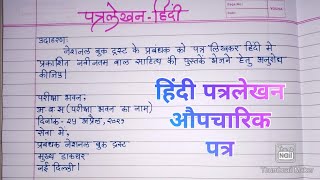 पत्रलेखन-हिंदी
उदाहरण:
नेशनल बुक ट्रस्ट के प्रबंधक को पत्र लिखकर हिंदी में
प्रकाशित नवीनतम बाल साहित्य की पुस्तकें भेजने हेतु अनुरोध
कीजिए।
परीक्षा भवन,
अ ब स (परीक्षा भवन का नाम)
दिनांक- २५ अप्रैल, २०२१
सेवा में,
प्रबंधक नेशनल बुक ट्रस्ट
नई दिल्ली।
हिंदी पत्रलेखन
औपचारिक
पत्र